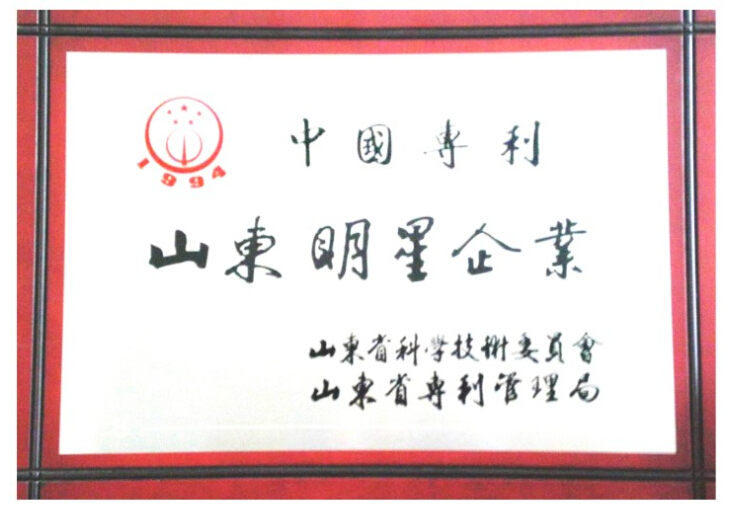 中國專利
1994
山東明星企業
山東省科學技術委員會
山東省專利管理局